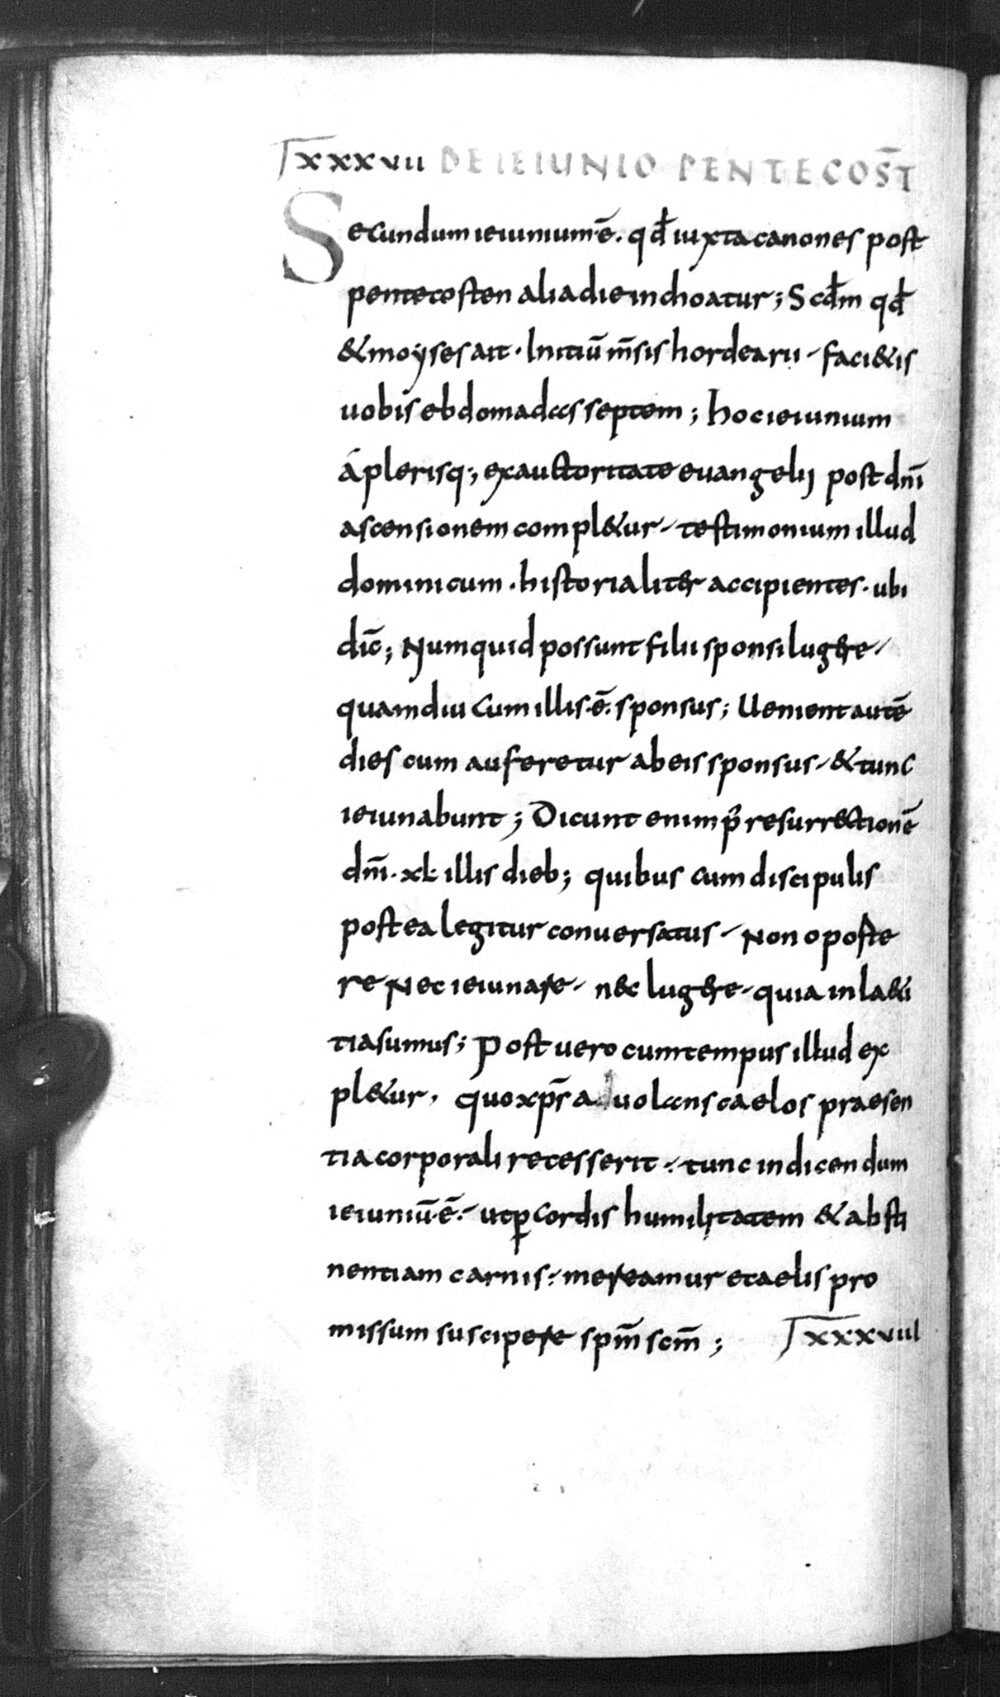 xxxvii DE IEIUNIO PENTECOST̄
Secundum ieiunium ē. qđ iuxta canones post
pentecosten alia die inchoatur; Scđm qđ
& moyses ait. Initiū m̄sis hordearii faci&is
uobis ebdomadas septem; hoc ieiunium
á plerisq; ex auctoritate euangelij post dn̄i
ascensionem compl&ur testimonium illud
dominicum. historialiter accipientes. ubi
dic̄; Numquid possunt filii sponsi lugere
quamdiu cum illis. ē. sponsus; Uenient autē
dies cum auferetur ab eis sponsus & tunc
ieiunabunt; Dicunt enim p̄ resurr&ctionē
dn̄i. xl. illis dieb; quibus cum discipulis
postea legitur conuersatus Non oposte
re Nec ieiunare nec lugere quia in la&i
tia sumus; Post uero cum tempus illud ex
pl&ur, quo xp̄s aduolans caelos praesen
tia corporali recesserit tunc indicendum
ieiuniū. ē. ut ꝑ cordis humilitatem & absti
nentiam carnis mereamur e caelis pro
missum suscipere spm̄ scm̄; xxxviii